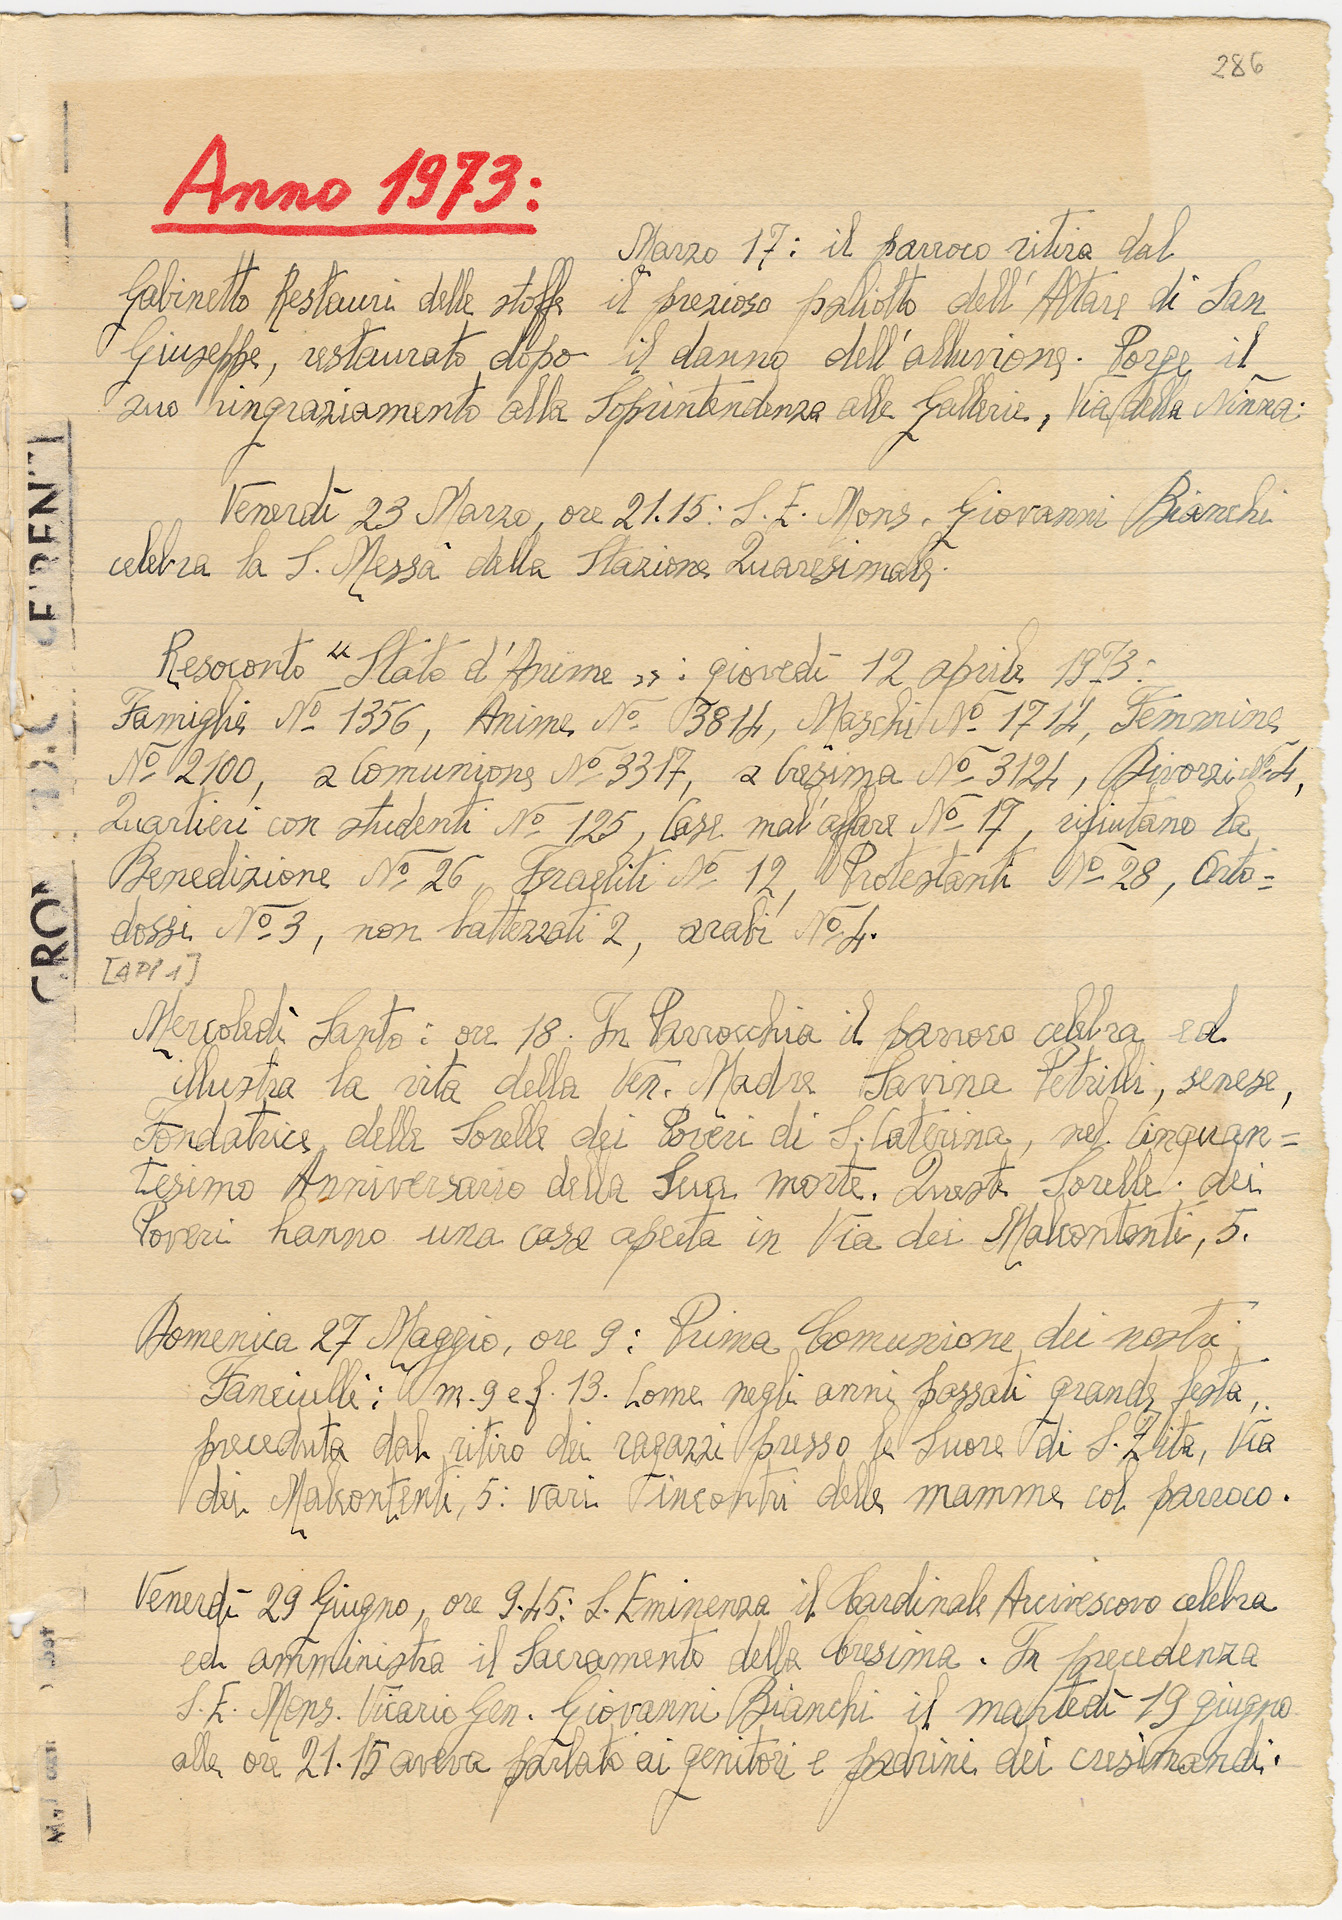 286
Anno 1973:
Marzo 17: il parroco ritira dal
Gabinetto Restauri delle stoffe il prezioso paliotto dell'Altare di San
Giuseppe, restaurato dopo il danno dell'alluvione. Porge il
suo ringraziamento alla Soprintendenza alle Gallerie, Via della Ninna:
Venerdì 23 Marzo, ore 21.15: S. E. Mons. Giovanni Bianchi
celebra la S. Messa della Stazione Quaresimale.
Resoconto "Stato d'Anime": giovedì 12 aprile 1973:
Famiglie No 1356, Anime No 3814, Maschi No 1714, Femmine
No 2100, a Comunione No 3317, a Cresima No 3124, Divorzi No 4,
Quartieri con studenti No 125, Case mal'affare No 17, rifiutano la
Benedizione No 26, Israeliti No 12, Protestanti No 28, Orto=
dossi No 3, non battezzati 2, arabi No 4.
[APP 1]
Mercoledì Santo: ore 18. In Parrocchia il parroco celebra ed
illustra la vita della Ven. Madre Savina Petrilli, senese,
Fondatrice delle Sorelle dei Poveri di S. Caterina, nel Cinquan=
tesimo Anniversario della Sua morte. Queste Sorelle dei
Poveri hanno una casa aperta in Via dei Malcontenti, 5.
Domenica 27 Maggio, ore 9: Prima Comunione dei nostri
Fanciulli: m. 9 e f. 13. Come negli anni passati grande festa,
preceduta dal ritiro dei ragazzi presso le Suore di S. Zita, Via
dei Malcontenti, 5: vari incontri delle mamme col parroco.
Venerdì 29 Giugno, ore 9.45: S. Eminenza il Cardinale Arcivescovo celebra
ed amministra il Sacramento della Cresima. In precedenza
S. E. Mons. Vicario Gen. Giovanni Bianchi il martedì 19 giugno
alle ore 21.15 aveva parlato ai genitori e padrini dei cresimandi.